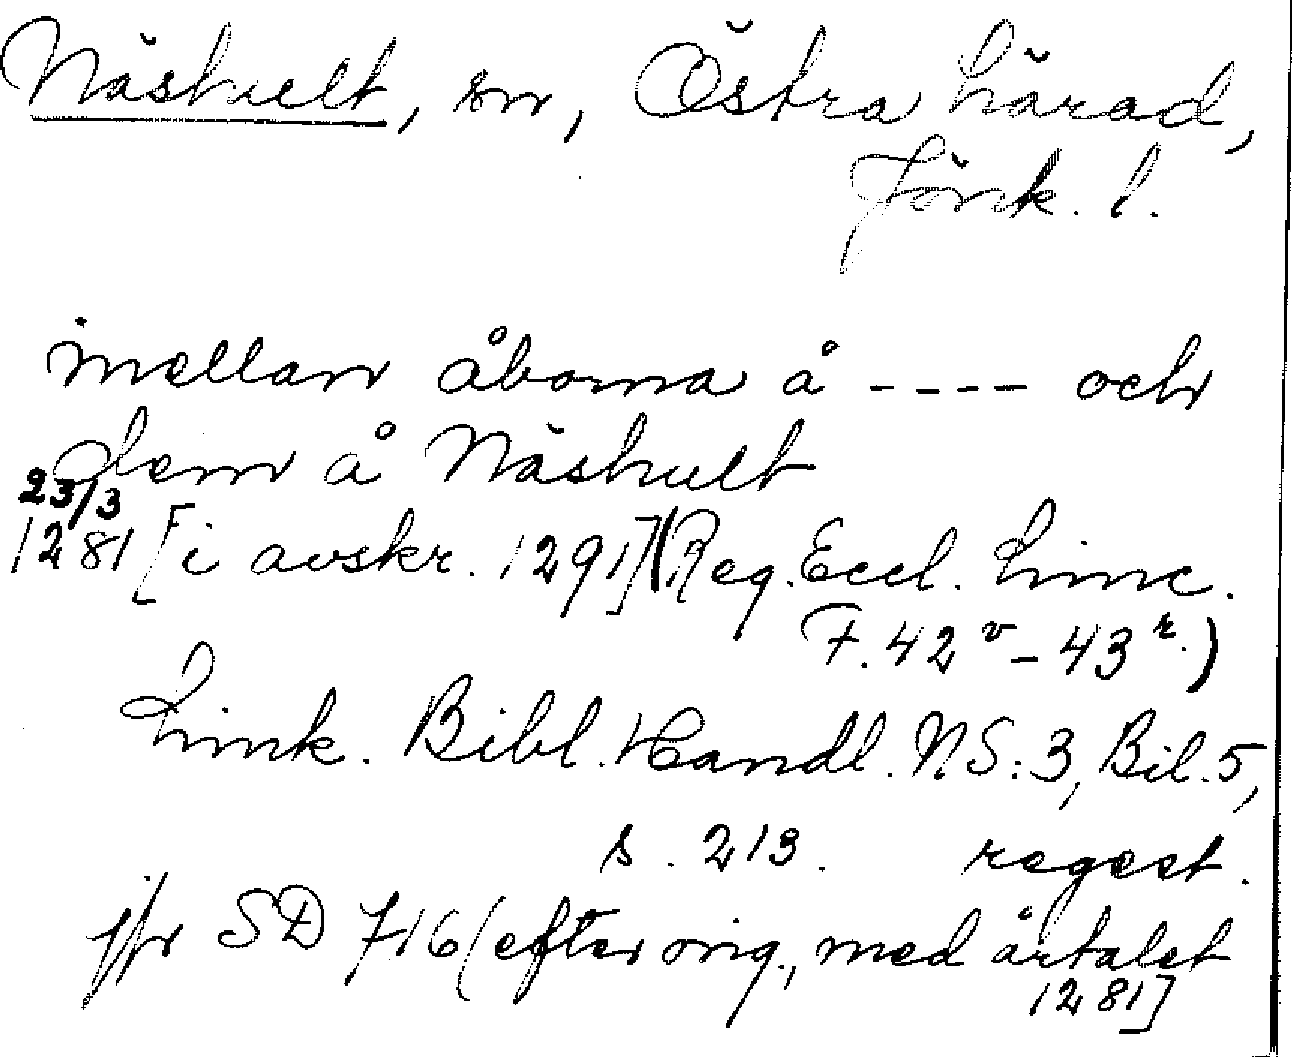 Näshult, sn, Östra härad,
Jönk. l.
mellan åborna å ---- och
dem å Näshult
23/3
1281 [i avskr. 1291] (Reg. Eccl. Linc.
F. 42 v - 43 r.)
Link. Bibl. Handl. NS: 3, Bil. 5,
s. 213. regest.
jfr SD 716 (efter orig., med årtalet
1281]